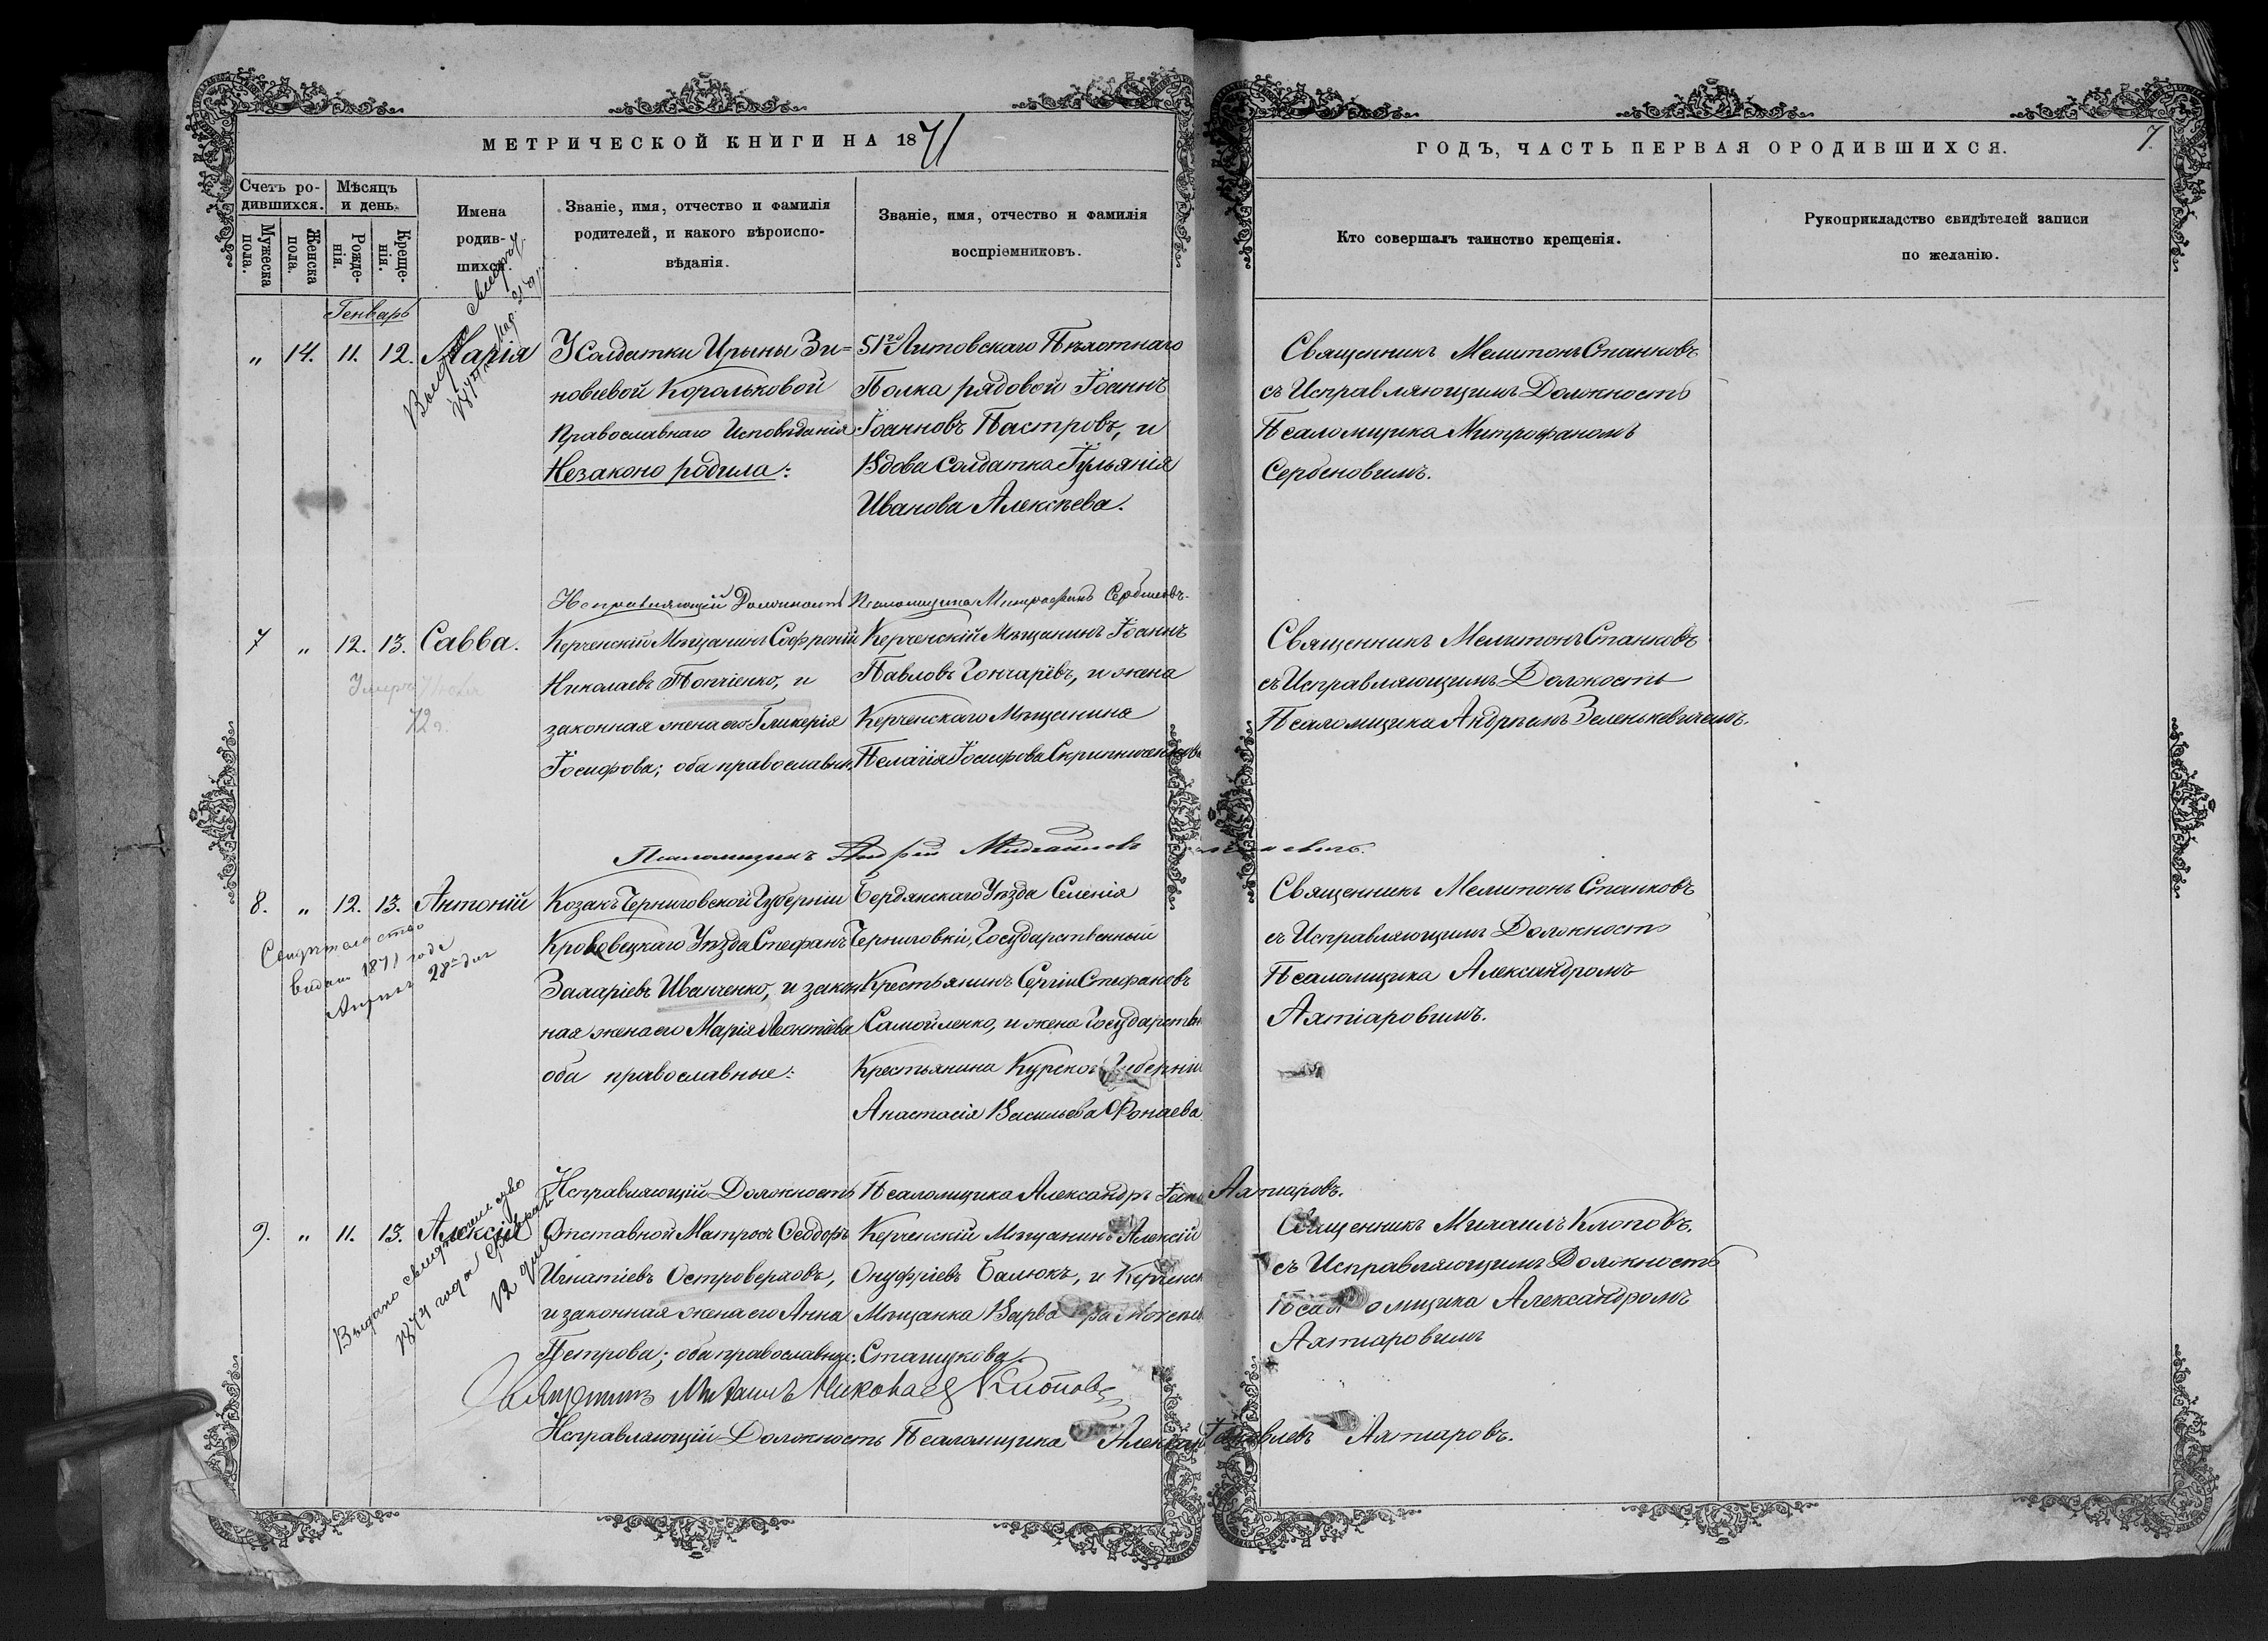 МЕТРИЧЕСКОЙ КНИГИ НА 1871
Счетъ ро-
дившихся.
Мѣсяцъ
и день.
Мужеска
пола.
Женска
пола.
Рожде-
нія.
Креще-
нія.
Имена
родив-
шихся.
Званіе, имя, отчество и фамилія
родителей, и какого вѣроиспо-
вѣданія.
Званіе, имя, отчество и фамилія
воспріемниковъ.
Генварь
„ 14. 11. 12. Марія
У Солдатки Ирины Зи=
новіевой Корольковой
Православнаго Исповѣданія
Незаконо родила:
51го Литовскаго Пѣхотнаго
Полка рядовой Іоаннъ
Іоанновъ Пастровъ, и
Вдова Солдатка Іульянія
Иванова Алексѣева.
Исправляющій Должность Псаломщика Митрофанъ Сербиновъ
7 „ 12. 13. Савва.
Умеръ
72 г.
Керченскій Мѣщанинъ Софроній
Николаевъ Попчіенко, и
законная жена его Гликерія
Іосифова; оба православн.
Керченскій Мѣщанинъ Іоаннъ
Павловъ Гончарёвъ, и жена
Керченскаго Мѣщанина
Пелагія Іосифова Скрипниченкова
Псаломщикъ Андрей Михайловъ
8. „ 12. 13. Антоній
Свидѣтельство
видано 1871 года
28го дня
Козакъ Черниговской Губерніи
Кролевецкаго Уѣзда Стефанъ
Захаріевъ Иванченко, и закон
ная жена его Марія Леонтіева
оба православные:
Бердянскаго Уѣзда Селенія
Черниговки, Государственный
Крестьянинъ Сергій Стефановъ
Самойленко, и жена Государствен
Крестьянина Курской Губерніи
Анастасія Васильева Фонаева
Исправляющій Должность Псаломщика Александръ Яков Ахтіаровъ.
9. „ 11. 13. Алексій
Выдано свидѣтельство
1874 года Февраля
12 дня
Отставной Матросъ Ѳеодоръ
Игнатіевъ Островерховъ,
и законная жена его Анна
Петрова; оба православные:
Керченскій Мѣщанинъ Алексій
Онуфріевъ Балюкъ, и Керченск
Мѣщанка Варвара
Стацукова.
Священникъ Михаилъ Николаевъ Клоповъ
Исправляющій Должность Псаломщика Александръ Яковлевъ Ахтіаровъ.
ГОДЪ, ЧАСТЬ ПЕРВАЯ О РОДИВШИХСЯ.
7.
Кто совершалъ таинство крещенія.
Рукоприкладство свидѣтелей записи
по желанію.
Священникъ Мелитонъ Станковъ
съ Исправляющимъ Должность
Псаломщика Митрофаномъ
Сербиновымъ.
Священникъ Мелитонъ Станковъ
съ Исправляющимъ Должность
Псаломщика Андреемъ Зеленкевичемъ.
Священникъ Мелитонъ Станковъ
съ Исправляющимъ Должность
Псаломщика Александромъ
Ахтіаровымъ.
Священникъ Михаилъ Клоповъ.
съ Исправляющимъ Должность
Псаломщика Александромъ
Ахтіаровымъ